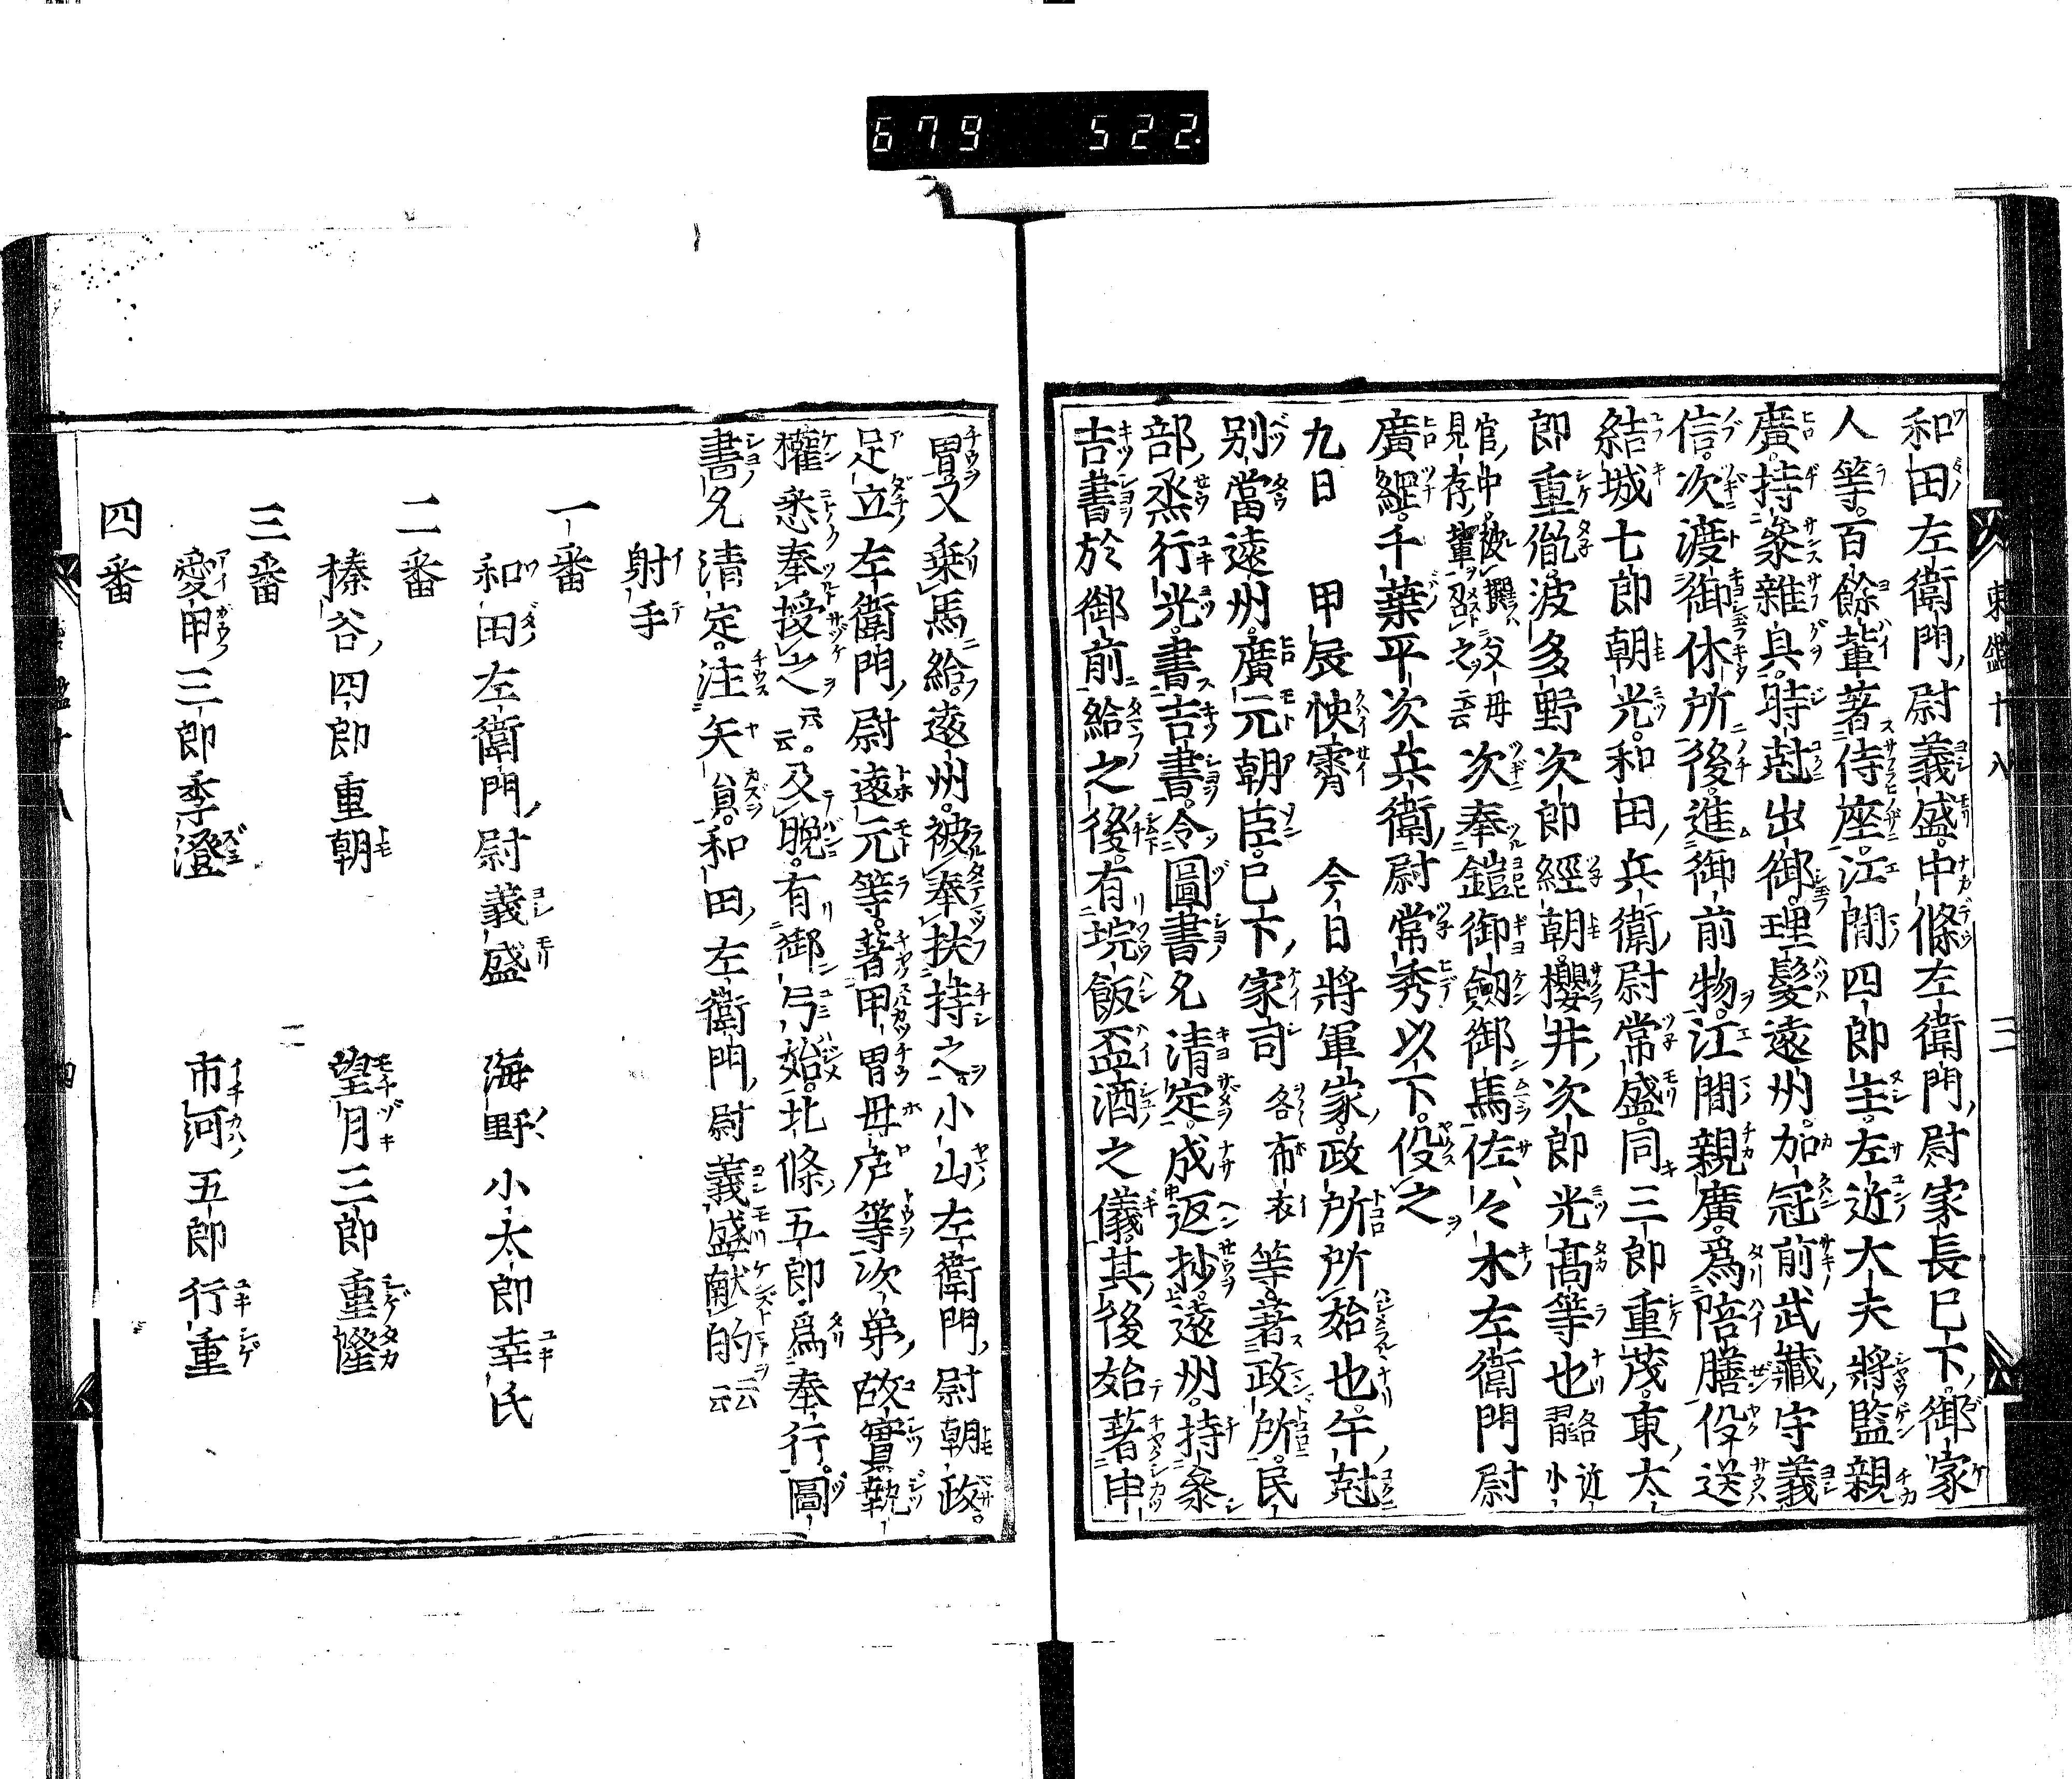 679 522
東鑑十八 三
和田左衛門尉義盛中條左衛門尉家長已下御家
人等百餘輩著侍座江間四郎主左近大夫將監親
廣持參雜具時尅出御理髪遠州加冠前武藏守義
信次渡御休所後進御前物江間親廣爲陪膳役送
結城七郎朝光和田兵衛尉常盛同三郎重茂東太
郎重胤波多野次郎經朝櫻井次郎光髙等也各近習小
官中被撰父母見存輩召之云云次奉鎧御劔御馬佐々木左衛門尉
廣綱千葉平次兵衛尉常秀以下役之
九日 甲辰快霽 今日將軍家政所所始也午尅
別當遠州廣元朝臣已下家司各布衣等著政所民
部烝行光書吉書令圖書允清定成返抄遠州持參
吉書於御前給之後有垸飯盃酒之儀其後始著甲
冑又乗馬給遠州被奉扶持之小山左衛門尉朝政
足立左衛門尉遠元等著甲冑母庐等次第故實執
權悉奉授之云云及晩有御弓始北條五郎爲奉行圖
書允清定注矢員和田左衛門尉義盛献的云云
射手
一番
和田左衛門尉義盛 海野小太郎幸氏
二番
榛谷四郎重朝 望月三郎重隆
三番
愛甲三郎季澄 市河五郎行重
四番